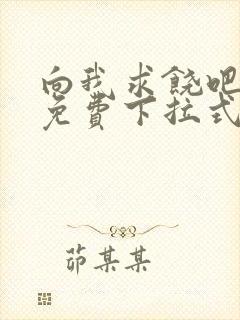 向我求饶吧
免費下拉式
茆某某